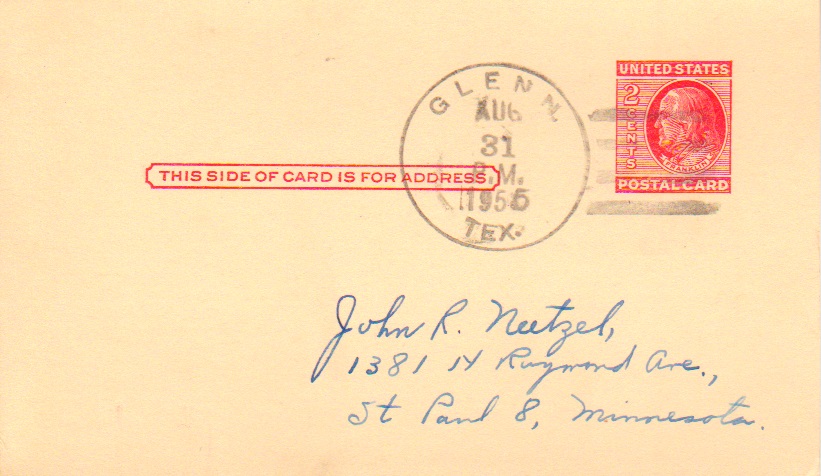 UNITED STATES
2 CENTS
FRANKLIN
POSTAL CARD
GLENN.
AUG
31
P.M.
1955
TEX.
THIS SIDE OF CARD IS FOR ADDRESS
John R. Neetzel,
1381 N Raymond Ave.,
St Paul 8, Minnesota.